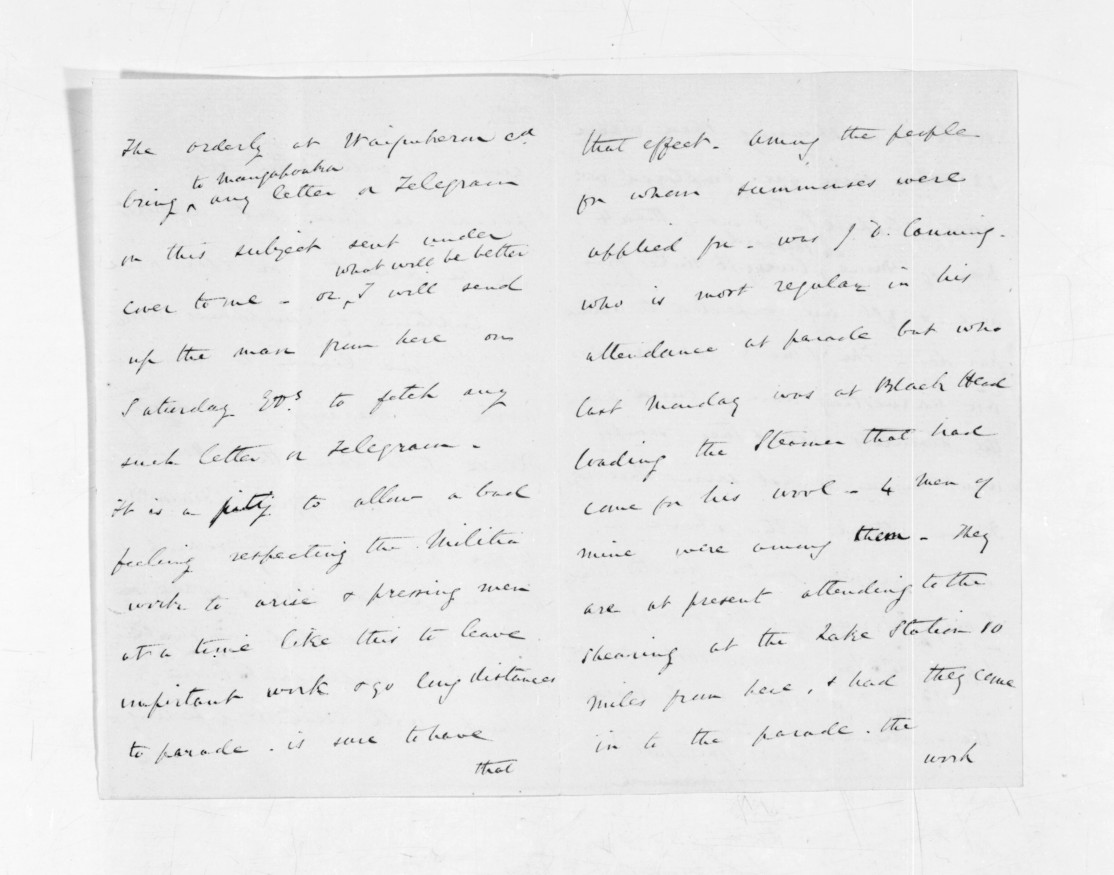 The orderly at Waipukerau cd
to Mangakouka
bring any letter or Telegram
on this subject sent under
what will be better
cover to me - or, I will send
up the man from here on
Saturday to fetch any
such letter or Telegram -
It is a pity to allow a bad
feeling respecting the Militia
work to arise & pressing men
at a time like this to leave
important work & go long distances
to parade. is sure to have
that
that effect. Among the people
for whom summonses were
applied for - was J D. Canning.
who is most regular in his
attendance at parade but who
last Monday was at Black Head
loading the Steamer that had
come for his wool - 4 men of
mine were among them - They
are at present attending to the
shearing at the Lake Station 10
miles from here, & had they come
in to the parade. the
work